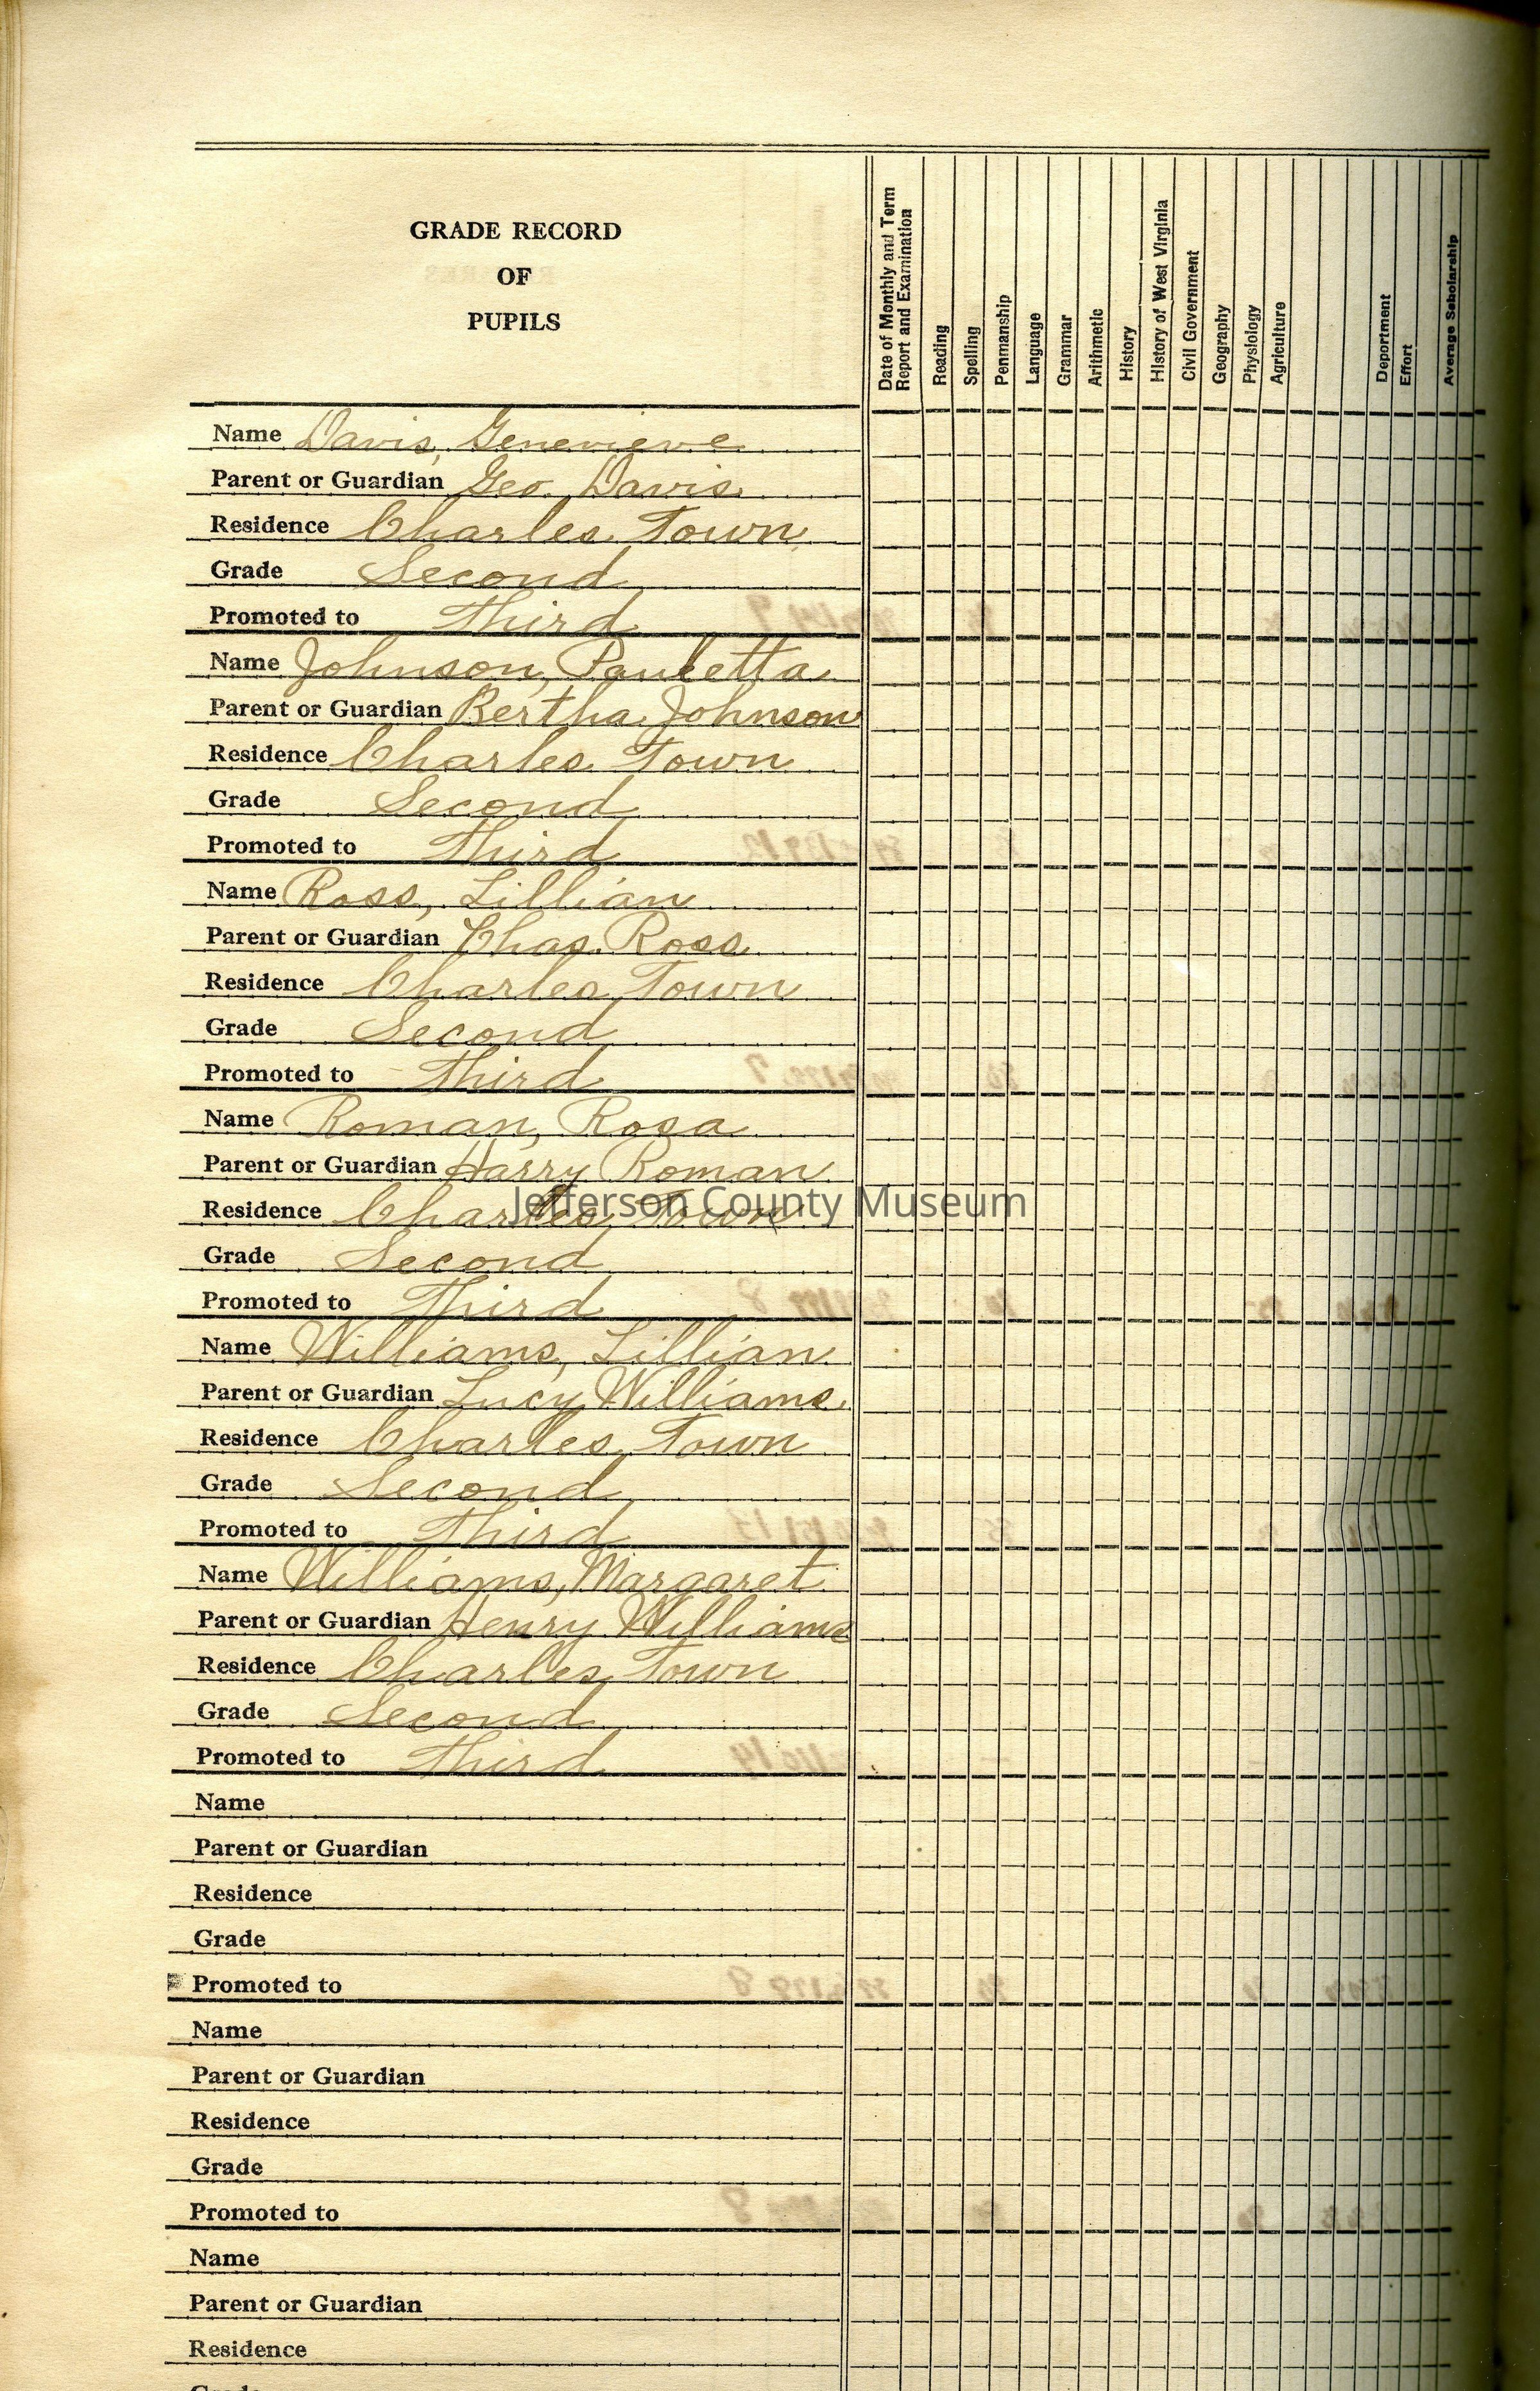 GRADE RECORD
OF
PUPILS
Date of Monthly and Term
Report and Examination
Reading
Spelling
Penmanship
Language
Grammar
Arithmetic
History
History of West Virginia
Civil Government
Geography
Physiology
Agriculture
Deportment
Effort
Average Scholarship
Name Davis, Genevieve
Parent or Guardian Geo. Davis
Residence Charles Town
Grade Second
Promoted to Third
Name Johnson, Pauletta
Parent or Guardian Bertha Johnson
Residence Charles Town
Grade Second
Promoted to Third
Name Ross, Lillian
Parent or Guardian Chas. Ross
Residence Charles Town
Grade Second
Promoted to Third
Name Roman, Rosa
Parent or Guardian Harry Roman
Residence Charles Town
Jefferson County Museum
Grade Second
Promoted to Third
Name Williams, Lillian
Parent or Guardian Lucy Williams
Residence Charles Town
Grade Second
Promoted to Third
Name Williams, Margaret
Parent or Guardian Henry Williams
Residence Charles Town
Grade Second
Promoted to Third
Name
Parent or Guardian
Residence
Grade
Promoted to
Name
Parent or Guardian
Residence
Grade
Promoted to
Name
Parent or Guardian
Residence